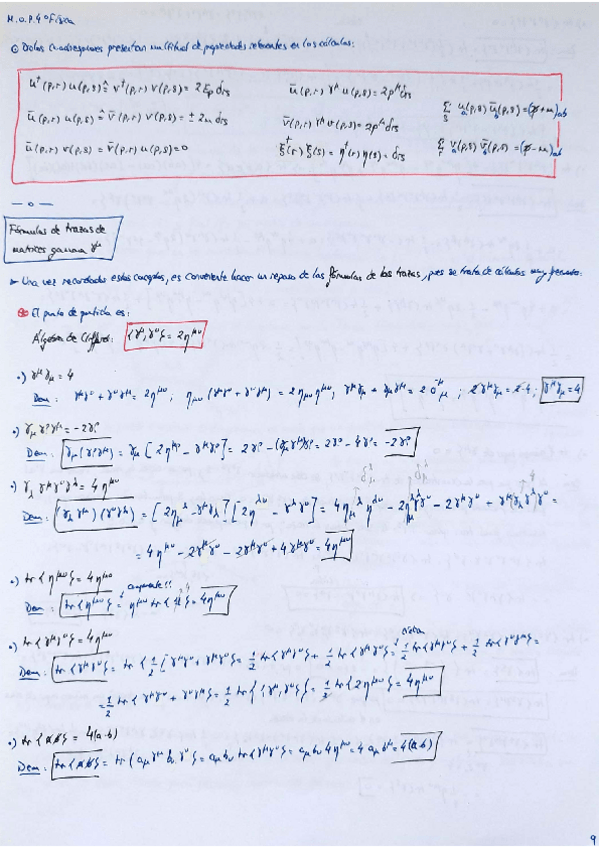 M.O.P. 4º Física
Dichos cuadriespinores presentan multitud de propiedades relevantes en los cálculos:
u†(p,r) u(p,s) ≙ v†(p,r) v(p,s) = 2Ep δrs
ū(p,r) γ^μ u(p,s) = 2p^μ δrs
ū(p,r) u(p,s) ≙ v̄(p,r) v(p,s) = ± 2m δrs
v̄(p,r) γ^μ v(p,s) = 2p^μ δrs
ū(p,r) v(p,s) = v̄(p,r) u(p,s) = 0
ξ†(r) ξ(s) = η†(r) η(s) = δrs
Σ_s u_a(p,s) ū_b(p,s) = (p̸ + m)_ab
Σ_r v_a(p,s) v̄_b(p,s) = (p̸ - m)_ab
— o —
Fórmulas de trazas de
matrices gamma γ^μ
Una vez recordados estos conceptos, es conveniente hacer un repaso de las fórmulas de las trazas, pues se trata de cálculos muy frecuentes.
El punto de partida es:
Álgebra de Clifford: {γ^μ, γ^ν} = 2η^μν
•) γ^μ γ_μ = 4
Dem: γ^μγ^ν + γ^νγ^μ = 2η^μν ; η_μν (γ^μγ^ν + γ^νγ^μ) = 2η_μν η^μν ; γ^μγ_μ + γ_μγ^μ = 2δ^μ_μ ; 2γ^μγ_μ = 2·4 ; γ^μγ_μ = 4
•) γ_μ γ^ρ γ^μ = -2γ^ρ
Dem: γ_μ(γ^ργ^μ) = γ_μ [2η^μρ - γ^μγ^ρ] = 2γ^ρ - (γ_μγ^μ)γ^ρ = 2γ^ρ - 4γ^ρ = -2γ^ρ
•) γ_λ γ^μ γ^ν γ^λ = 4η^μν
= 4η^μν - 2γ^μγ^ν - 2γ^μγ^ν + 4γ^μγ^ν = 4η^μν
•) tr{η^μν} = 4η^μν
componente!!
Dem: tr{η^μν} = η^μν tr{1} = 4η^μν
•) tr{γ^μγ^ν} = 4η^μν
cíclica
Dem: tr{γ^μγ^ν} = tr{½[γ^μγ^ν + γ^μγ^ν]} = ½ tr{γ^μγ^ν} + ½ tr{γ^μγ^ν} = ½ tr{γ^μγ^ν} + ½ tr{γ^νγ^μ} =
= ½ tr{γ^μγ^ν + γ^νγ^μ} = ½ tr{{γ^μ, γ^ν}} = ½ tr{2η^μν} = 4η^μν
•) tr{a̸b̸} = 4(a·b)
Dem: tr{a̸b̸} = tr{a_μγ^μ b_νγ^ν} = a_μb_ν tr{γ^μγ^ν} = a_μb_ν 4η^μν = 4a_μb^μ = 4(a·b)
9